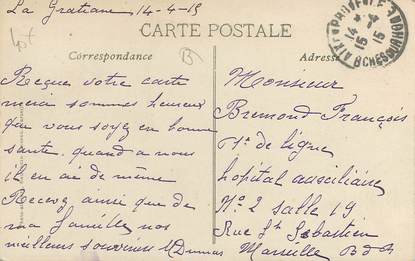 La Gratiane 14-4-15
CARTE POSTALE
Correspondance
Adresse
Reçue votre carte
merci sommes heureux
que vous soyez en bonne
santé, quand a nous
il en ai de même
Recevez ainsi que de
ma famille nos
meilleurs souvenirs Dumas
Monsieur
Bremond François
de ligne
hôpital auxciliaire
N° 2 Salle 19
Rue St Sébastien
Marseille B d R
14 - 4
15